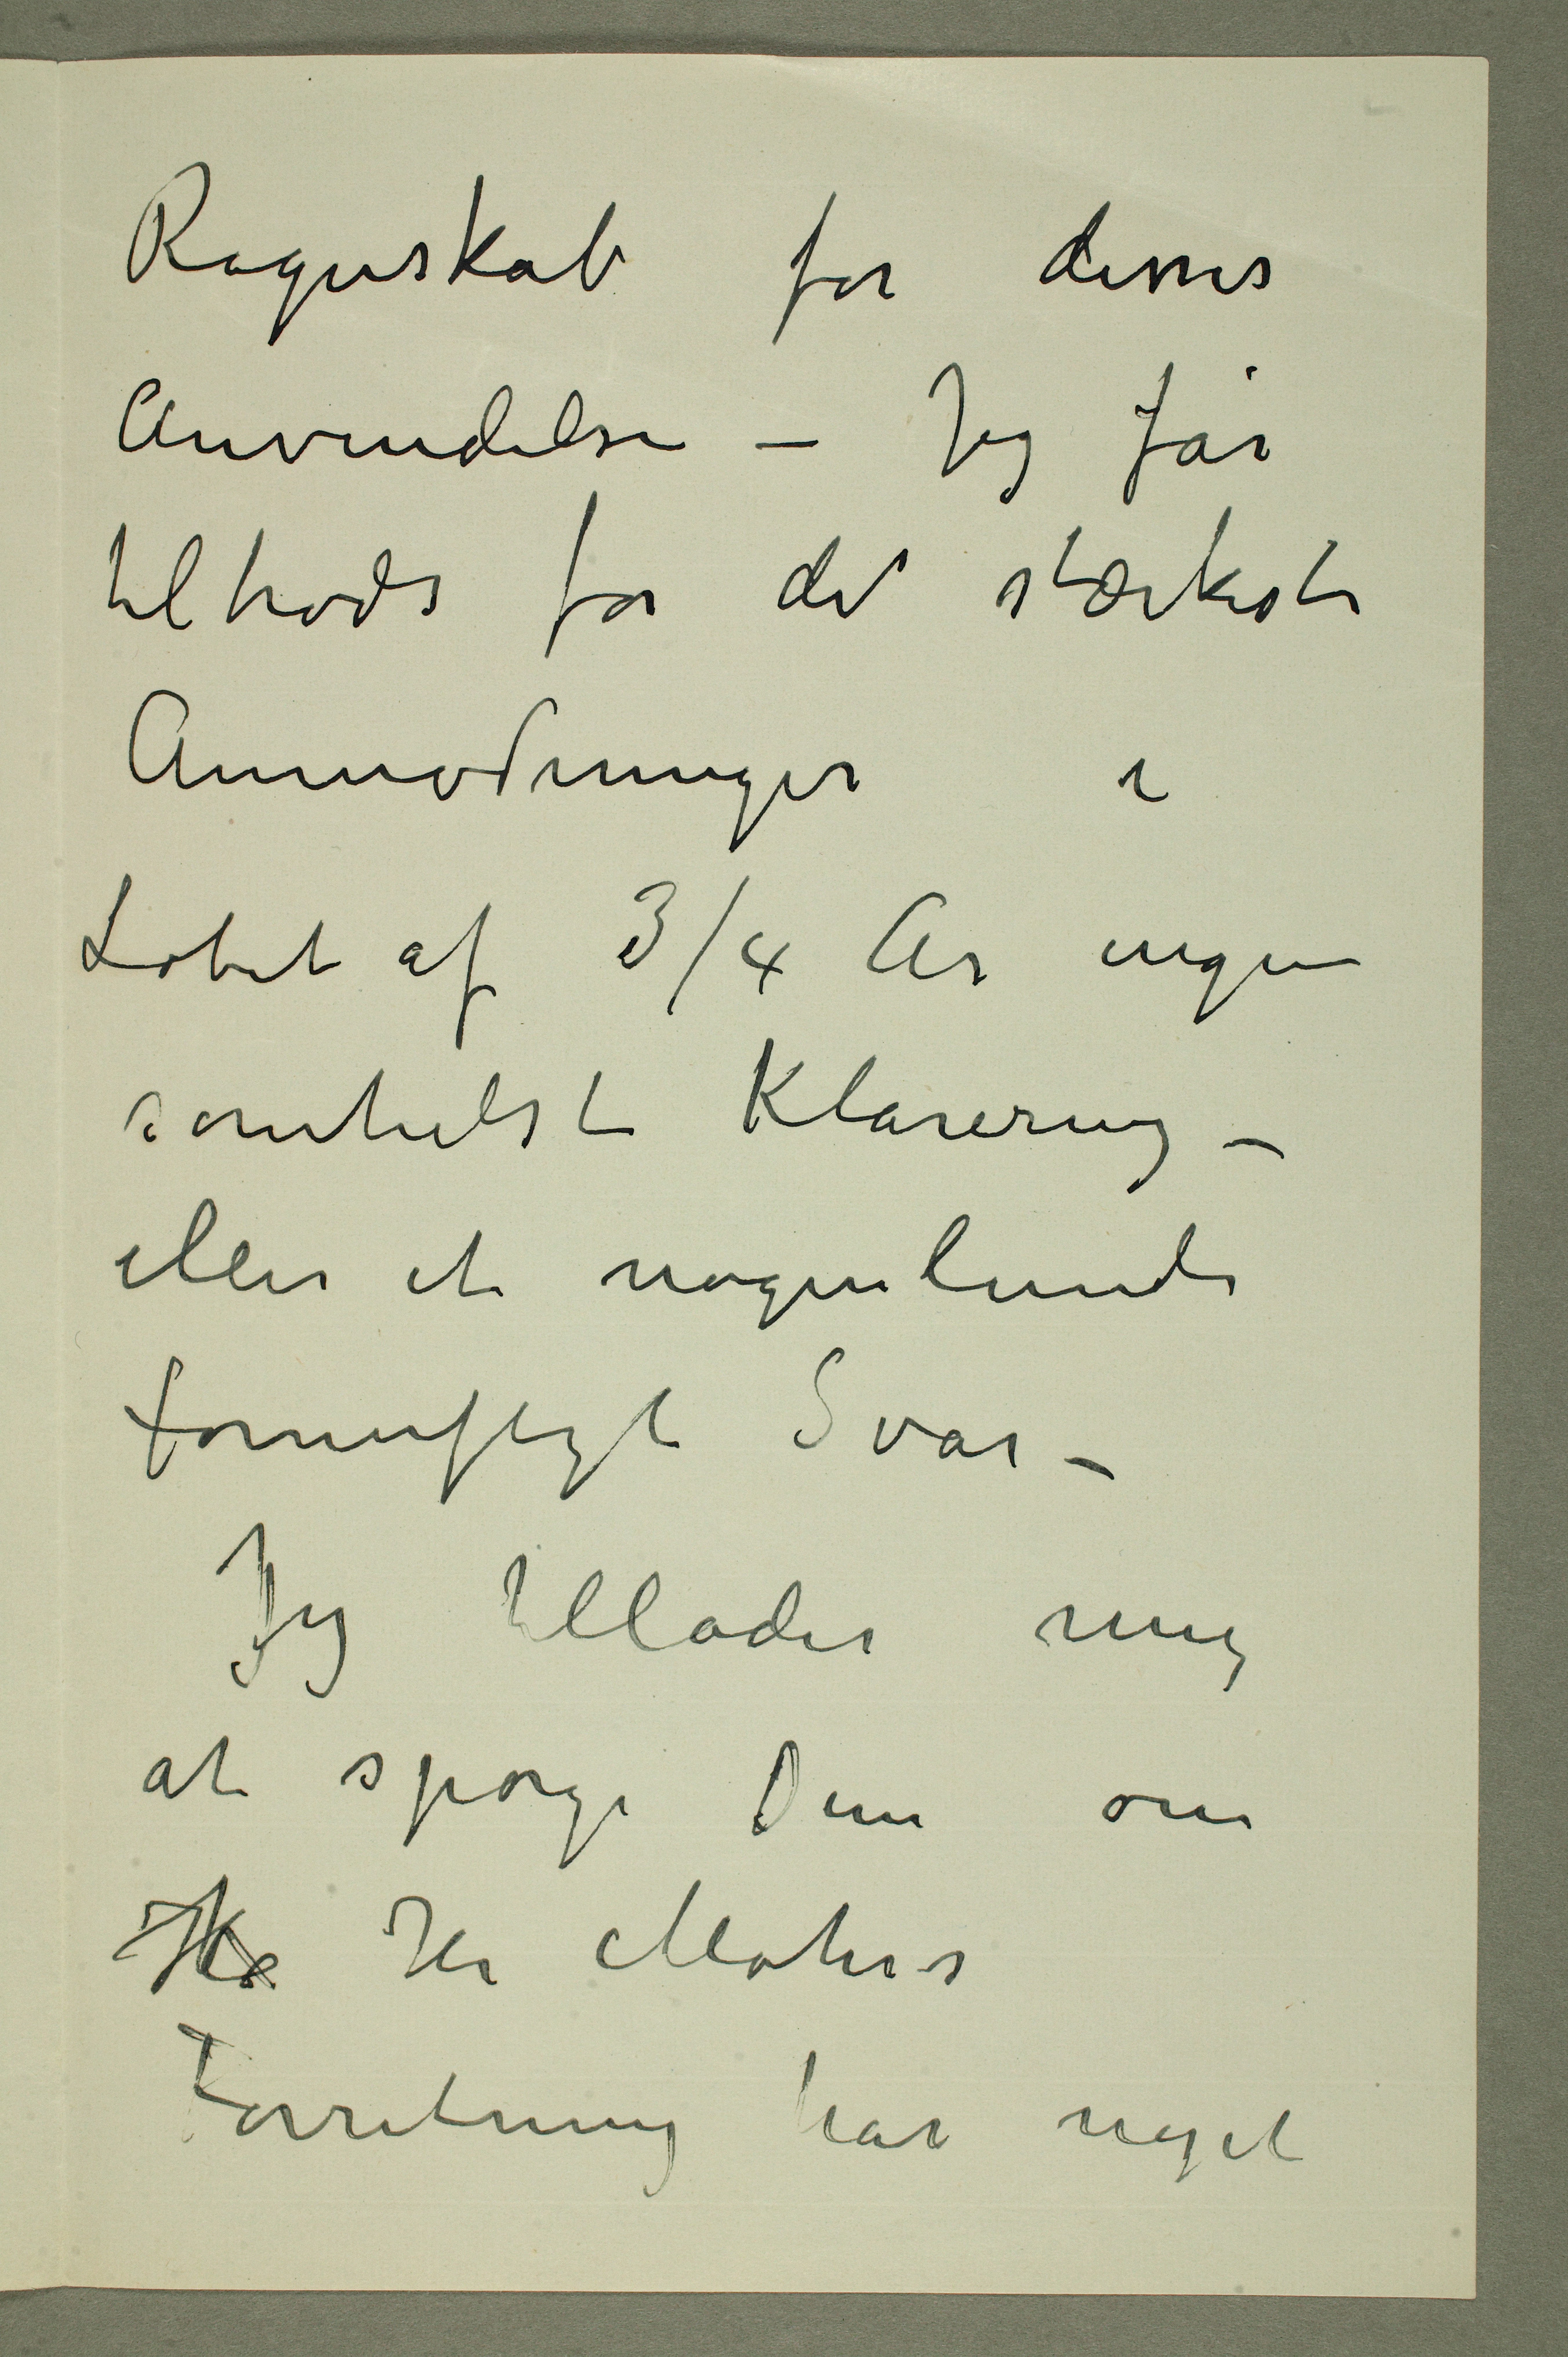 Regnskab for disses
Anvendelse – Jeg får
tiltrods for det stærkeste
Anmodninger i
Løbet af 3/4 År ingen
somhelst Klarering –
eller et nogenlunde
fornuftigt Svar –
Jeg tillader mig
at spørge Dem om
Hr Mohrs
Forretning har noget